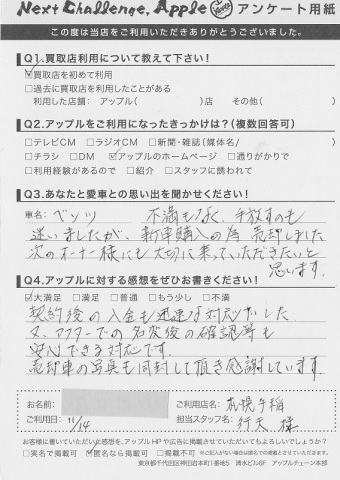 Next Challenge, Apple アンケート用紙
この度は当店をご利用いただきありがとうございました。
Q1.買取店利用について教えて下さい!
☑買取店を初めて利用
□過去に買取店を利用したことがある
利用した店舗： アップル( )店 その他( )
Q2.アップルをご利用になったきっかけは?(複数回答可)
□テレビCM □ラジオCM □新聞・雑誌(媒体名/ )
□チラシ □DM ☑アップルのホームページ □通りがかりで
□利用経験があるので □紹介 □スタッフに誘われて
Q3.あなたと愛車との思い出を聞かせてください!
車名： ベンツ 不満もなく、手放すのも
迷いましたが、新車購入の為 売却しました
次のオーナー様にも大切に乗っていただきたいと
思います。
Q4.アップルに対する感想をぜひお書きください!
☑大満足 □満足 □普通 □もう少し □不満
契約後の入金も迅速な対応でした
又、アフターでの名変後の確認等も
安心できる対応です。
売却車の写真も同封して頂き感謝しています。
お名前：
ご利用店名： 札幌手稲
ご利用日： 11/14
担当スタッフ名： 行天 様
お客様に書いていただいた感想を、アップルHPや広告に掲載させていただいてもよろしいでしょうか?
□実名で掲載可 ☑匿名なら掲載可 □掲載不可 ※ご記入がない場合は匿名での掲載とさせていただきます。
東京都千代田区神田岩本町1番地5 清水ビル6F アップルチェーン本部